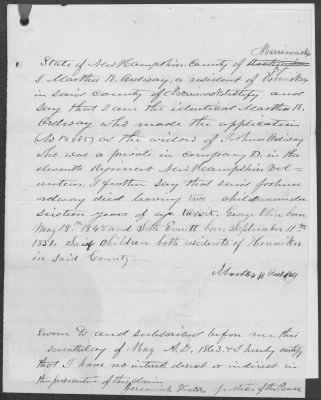 Merrimack
State of New Hampshire County of
I Martha H. Ordway, a resident of Henniker
in said County of Merrimack testify and
say that I am the identical Martha H.
Ordway who made the application
as the widow of Joshua Ordway
who was a private in company D. in the
eleventh Regiment New Hampshire Vol-
unteers. I further say that said Joshua
Ordway died leaving two children under
sixteen years of age to wit, George born
May 18th and Seth Everett born September 11th
1851. Said Children both residents of Henniker
in said County
Martha H Ordway
Sworn to and subscribed before me this
seventh day of May A.D. 1863. & I hereby certify
that I have no interest direct or indirect in
the prosecution of this claim.
Jeremiah Foster Justice of the Peace